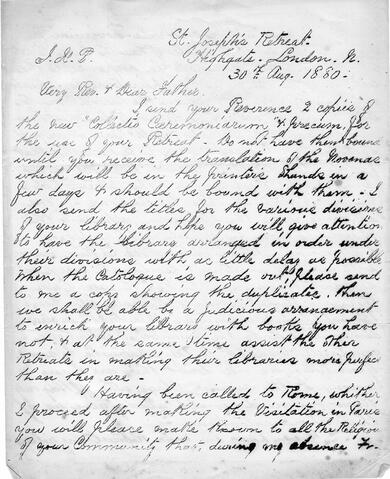 St. Joseph's Retreat.
J. X. P.
Highgate - London. N.
30th Aug. 1880.
Very Rev. & Dear Father.
I send your Reverence 2 copies of
the new "Collectio Ceremoniarum & Precum, for
the use of your Retreat. - Do not have them bound
until you receive the translation of the Novenas
which will be in the Printers hands in a
few days & should be bound with them. - I
also send the titles for the various divisions
of your library and hope you will give attention
to have the library arranged in order under
their divisions with as little delay as possible
When the Catalogue is made out, please send
to me a copy showing the duplicates. Then
we shall be able by a judicious arrangement
to enrich your library with books you have
not, & at the same time assist the other
Retreats in making their libraries more perfect
than they are. -
Having been called to Rome, whither
I proceed after making the Visitation in Paris
you will please make known to all the Religious
of your Community that, during my absence Fr.